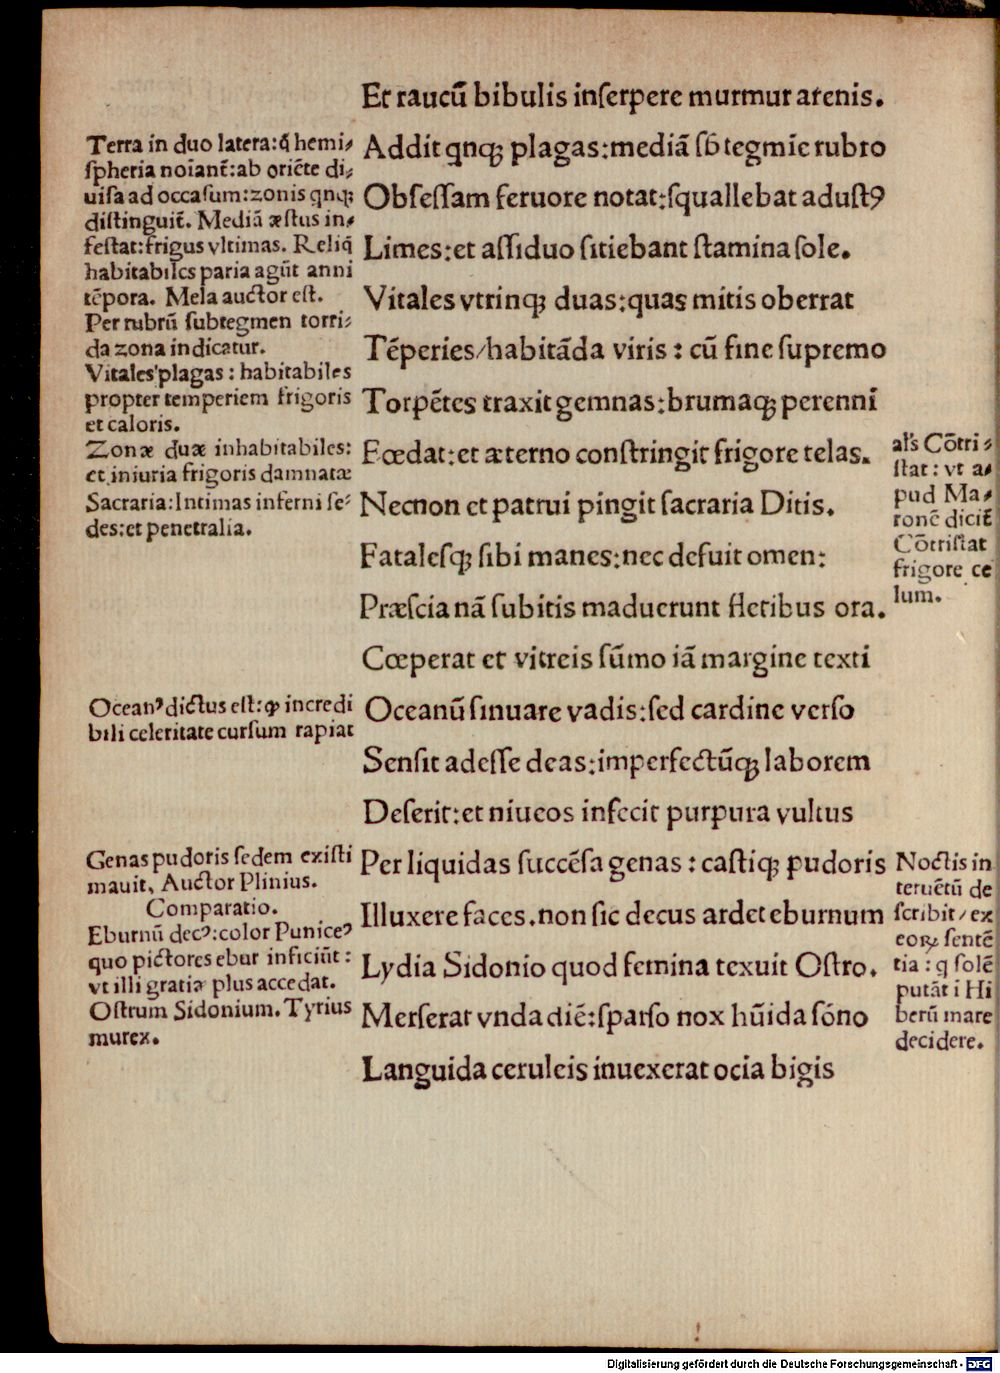 Et raucū bibulis inſerpere murmur arenis.
Addit qnqꝫ plagas:mediā ſb́ tegmīe rubro
Obſeſſam feruore notat:ſquallebat aduſtꝰ
Limes:et aſſiduo ſitiebant ſtamina ſole.
Vitales vtrinqꝫ duas:quas mitis oberrat
Tēperies/habitāda viris : cū fine ſupremo
Torpētes traxit gemnas:brumaqꝫ perenni
Fœdat:et æterno conſtringit frigore telas.
Necnon et patrui pingit ſacraria Ditis.
Fataleſqꝫ ſibi manes:nec defuit omen:
Præſcia nā ſubitis maduerunt fletibus ora.
Cœperat et vitreis ſūmo iā margine texti
Oceanū ſinuare vadis:ſed cardine verſo
Senſit adeſſe deas:imperfectūqꝫ laborem
Deſerit:et niueos infecit purpura vultus
Per liquidas ſuccēſa genas : caſtiqꝫ pudoris
Illuxere faces.non ſic decus ardet eburnum
Lydia Sidonio quod femina texuit Oſtro.
Merſerat vnda diē:ſparſo nox hūida ſóno
Languida ceruleis inuexerat ocia bigis
Terra in duo latera:q̄ hemi⸗
ſpheria noīant̄:ab oriēte di⸗
uiſa ad occaſum:zonis qnqꝫ
diſtinguit̄. Mediā æſtus in⸗
feſtat:frigus vltimas. Reliq̄
habitabiles paria agūt anni
tēpora. Mela auctor eſt.
Per rubrū ſubtegmen torri⸗
da zona indicatur.
Vitales plagas : habitabiles
propter temperiem frigoris
et caloris.
Zonæ duæ inhabitabiles:
et iniuria frigoris damnatæ
Sacraria:Intimas inferni ſe⸗
des:et penetralia.
Oceanꝰ dictus eſt:ꝙ incredi
bili celeritate curſum rapiat
Genas pudoris ſedem exiſti
mauit, Auctor Plinius.
Comparatio.
Eburnū decꝰ:color Puniceꝰ
quo pictores ebur inficiūt :
vt illi gratiæ plus accedat.
Oſtrum Sidonium. Tyrius
murex.
al's Cōtri⸗
ſtat : vt a⸗
pud Ma⸗
ronē dicit̄
Cōtriſtat
frigore ce
lum.
Noctis in
teruētū de
ſcribit/ex
eoꝝ ſentē
tia : q ſolē
putāt i Hi
berū mare
decidere.
Digitalisierung gefördert durch die Deutsche Forschungsgemeinschaft - DFG